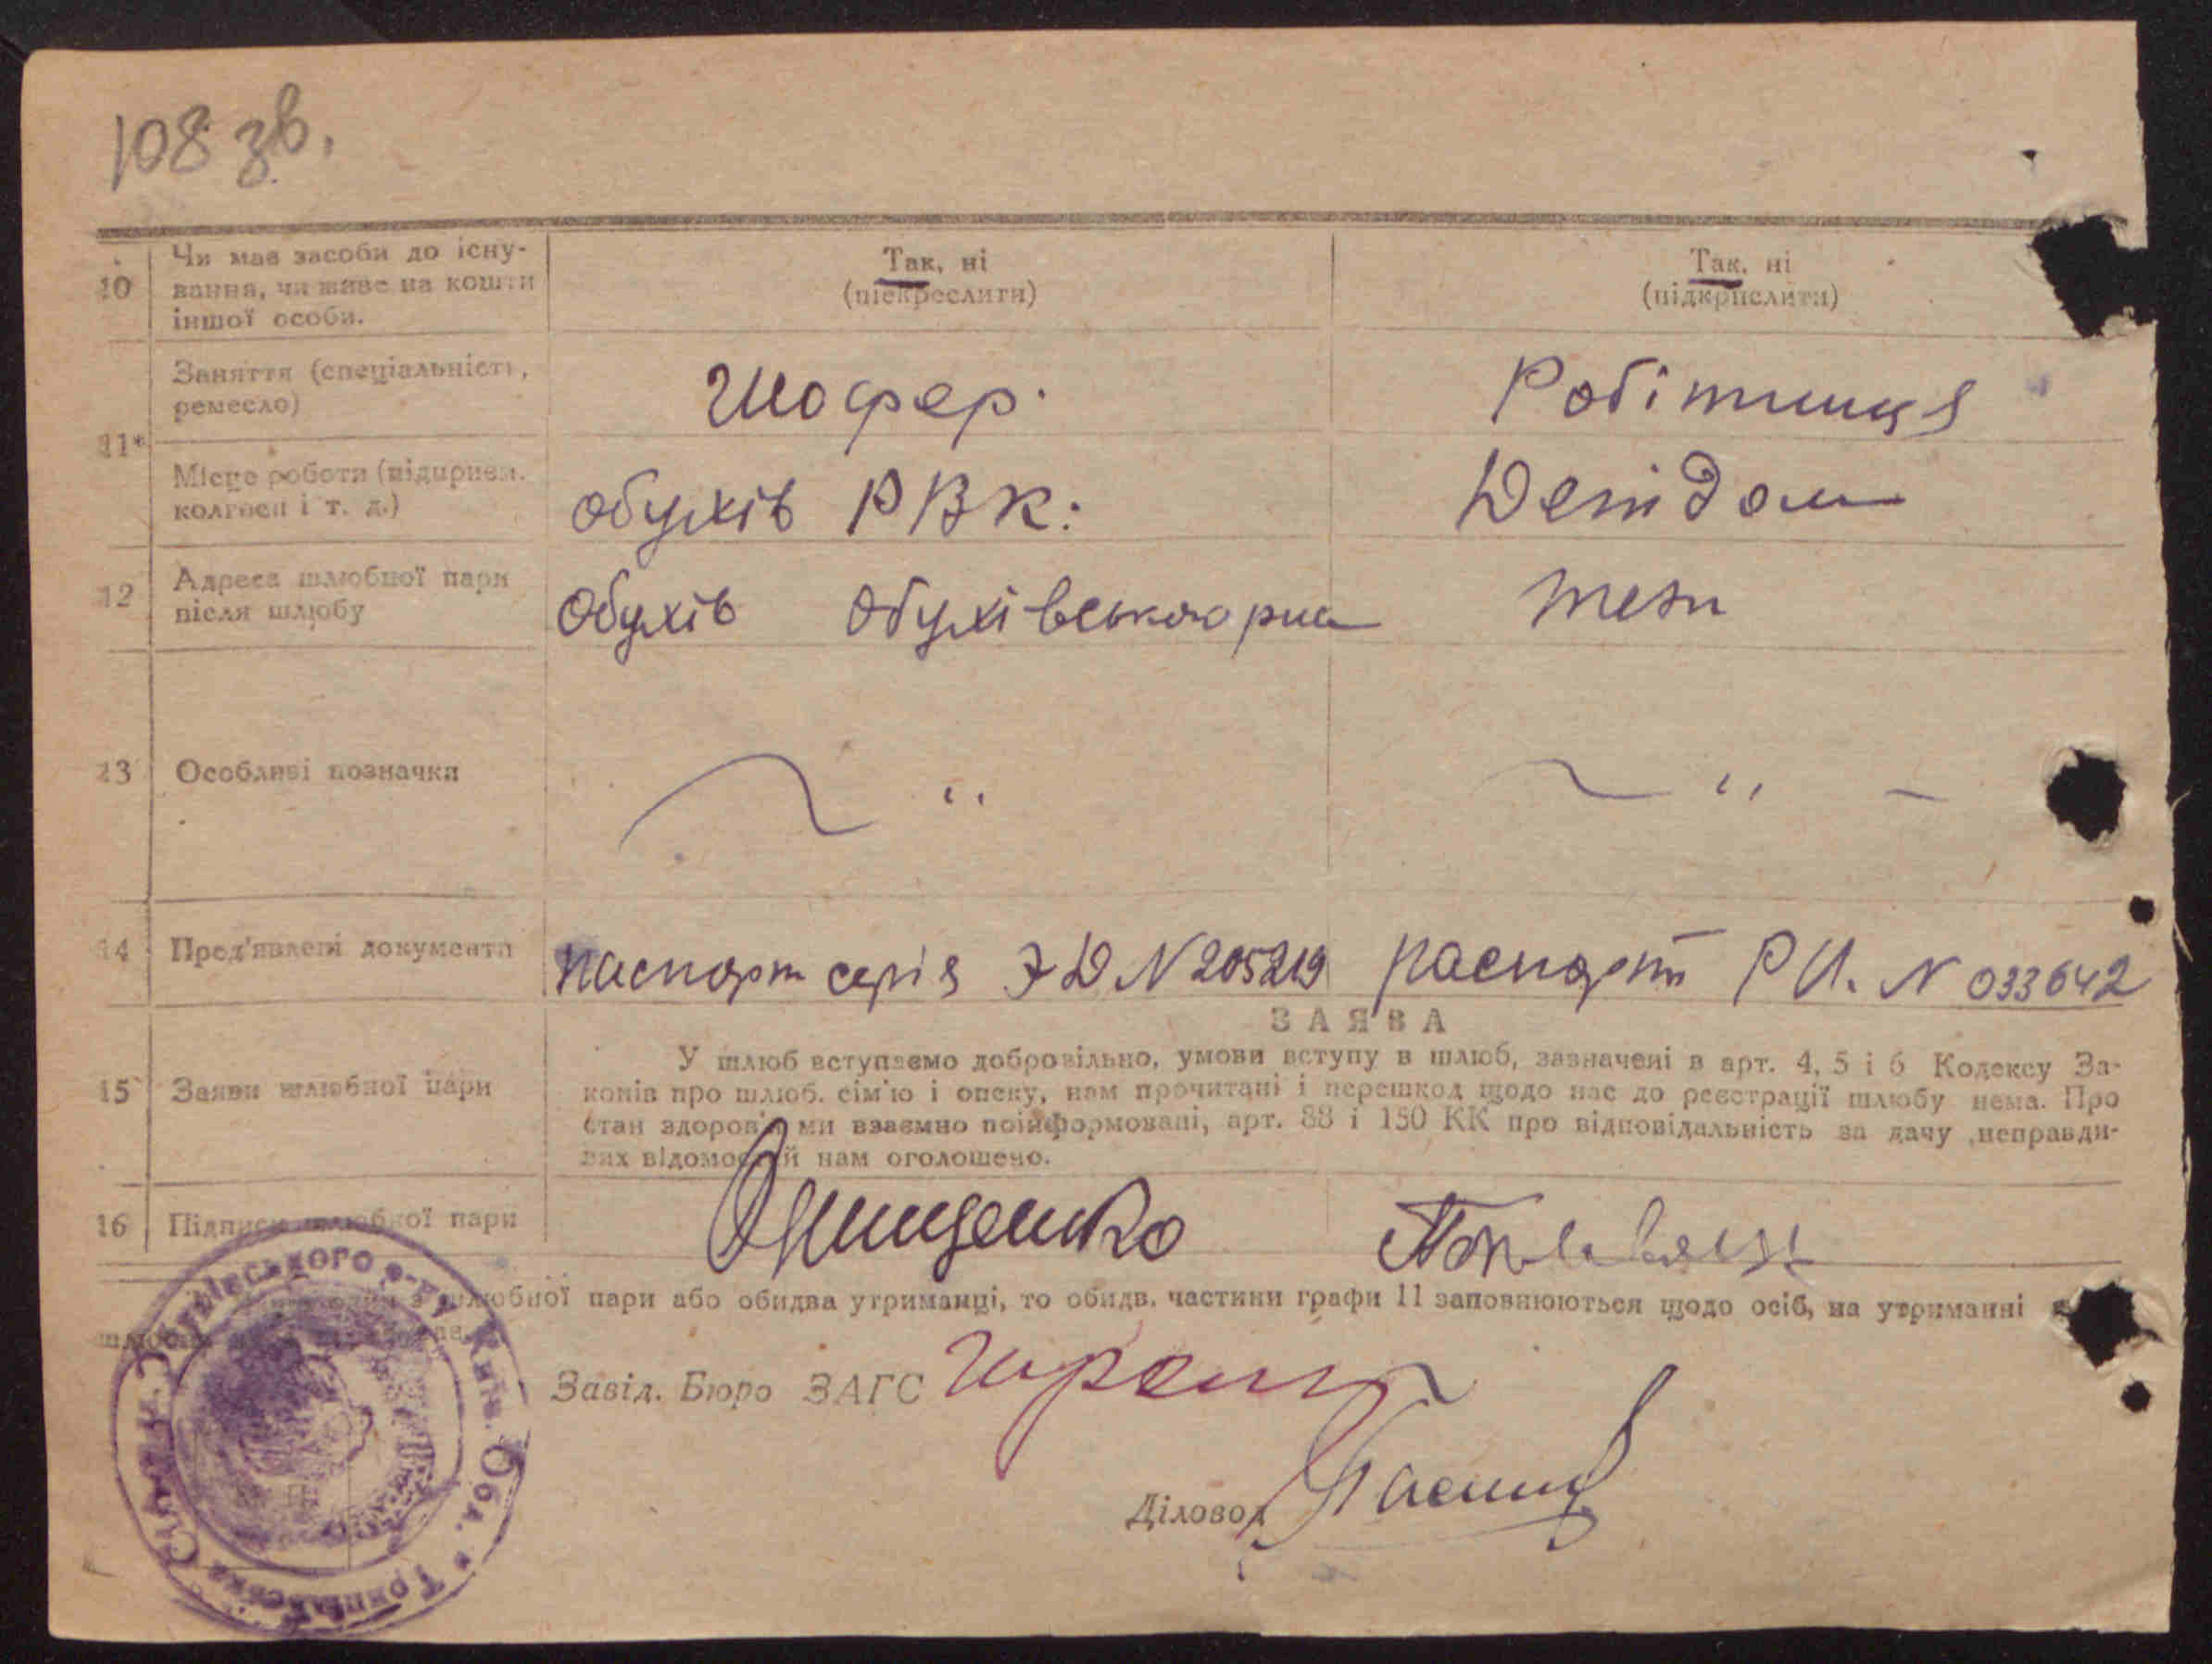 108 зв.
10 Чи має засоби до існу-
вання, чи живе на кошти
іншої особи.
Так, ні
(підкреслити)
Так, ні
(підкрислити)
11*
Заняття (спеціальність,
ремесло)
Шофер.
Робітниця
Місце роботи (підприєм.
колгосп і т. д.)
Обухів РВК.
Детдом
12 Адреса шлюбної пари
після шлюбу
Обухів Обухівського р-на
тези
13 Особливі позначки
" "
14 Пред'явлені документи
паспорт серія ЭД N 205219 паспорт РИ. N 033642
ЗАЯВА
15 Заяви шлюбної пари
У шлюб вступаємо добровільно, умови вступу в шлюб, зазначені в арт. 4, 5 і 6 Кодексу За-
конів про шлюб. сім'ю і опеку, нам прочитані і перешкод щодо нас до реєстрації шлюбу нема. Про
стан здоров'я ми взаємно поінформовані, арт. 88 і 150 КК про відповідальність за дачу неправди-
вих відомостей нам оголошено.
16 Підписи шлюбної пари
Онищенко
один з шлюбної пари або обидва утриманці, то обидв. частини графи 11 заповнюються щодо осіб, на утриманні
Завід. Бюро ЗАГС
Діловод
Обухівського р-ну Київ. Обл. * Трипільська Сільрада